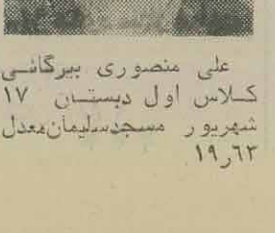 علی منصوری بیرگانی
کلاس اول دبستان ۱۷
شهریور مسجدسلیمان معدل
۱۹٫۶۳